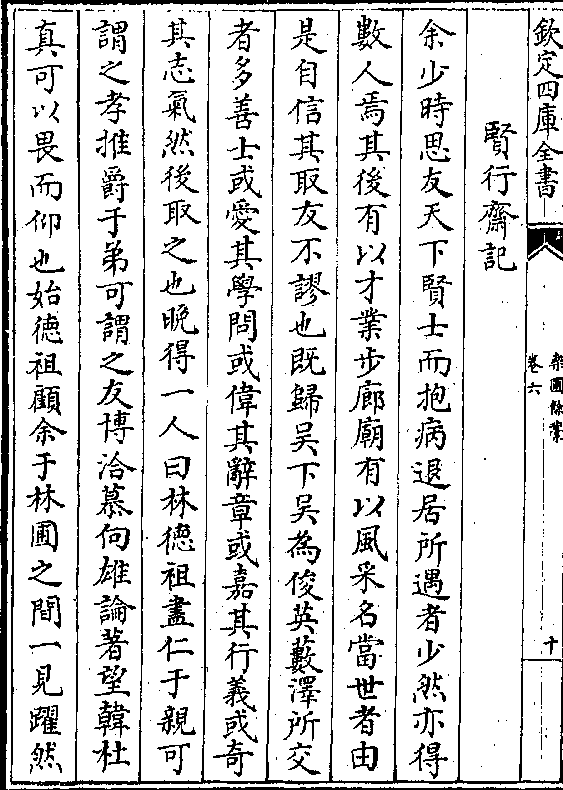 欽定四庫全書
樂圃餘藁
卷六
十
賢行齋記
余少時思友天下賢士而抱病退居所遇者少然亦得
數人焉其後有以才業步廊廟有以風采名當世者由
是自信其取友不謬也既歸吳下吳為俊英藪澤所交
者多善士或愛其學問或偉其辭章或嘉其行義或奇
其志氣然後取之也晚得一人曰林德祖盡仁于親可
謂之孝推爵于弟可謂之友博洽慕向雄論著望韓杜
真可以畏而仰也始德祖顧余于林圃之間一見躍然